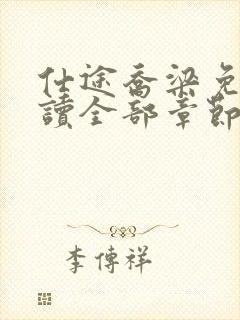 仕途喬梁免
讀全部章節
李傳祥